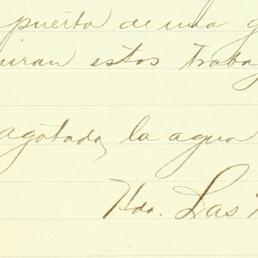 puerta de una g
uiran estos traba
agotada, la agua
Hda. Las